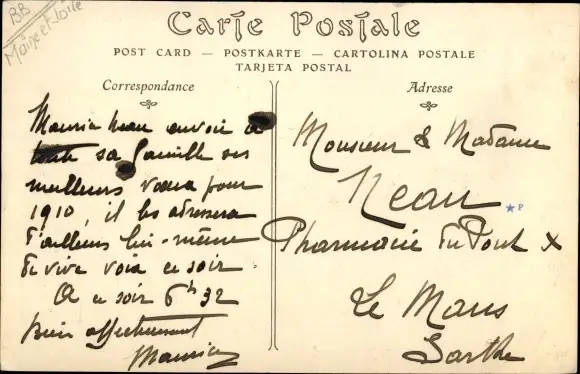 BB
Maine et Loire
Carte Postale
POST CARD — POSTKARTE — CARTOLINA POSTALE
TARJETA POSTAL
Correspondance
Maurice Neau envoie à
toute sa famille ses
meilleurs vœux pour
1910, il les adressera
d'ailleurs lui-même
de vive voix ce soir
A ce soir 6h32
Bien affectueusement
Maurice
Adresse
Monsieur & Madame
Neau
P
Pharmacie du Pont x
Le Mans
Sarthe